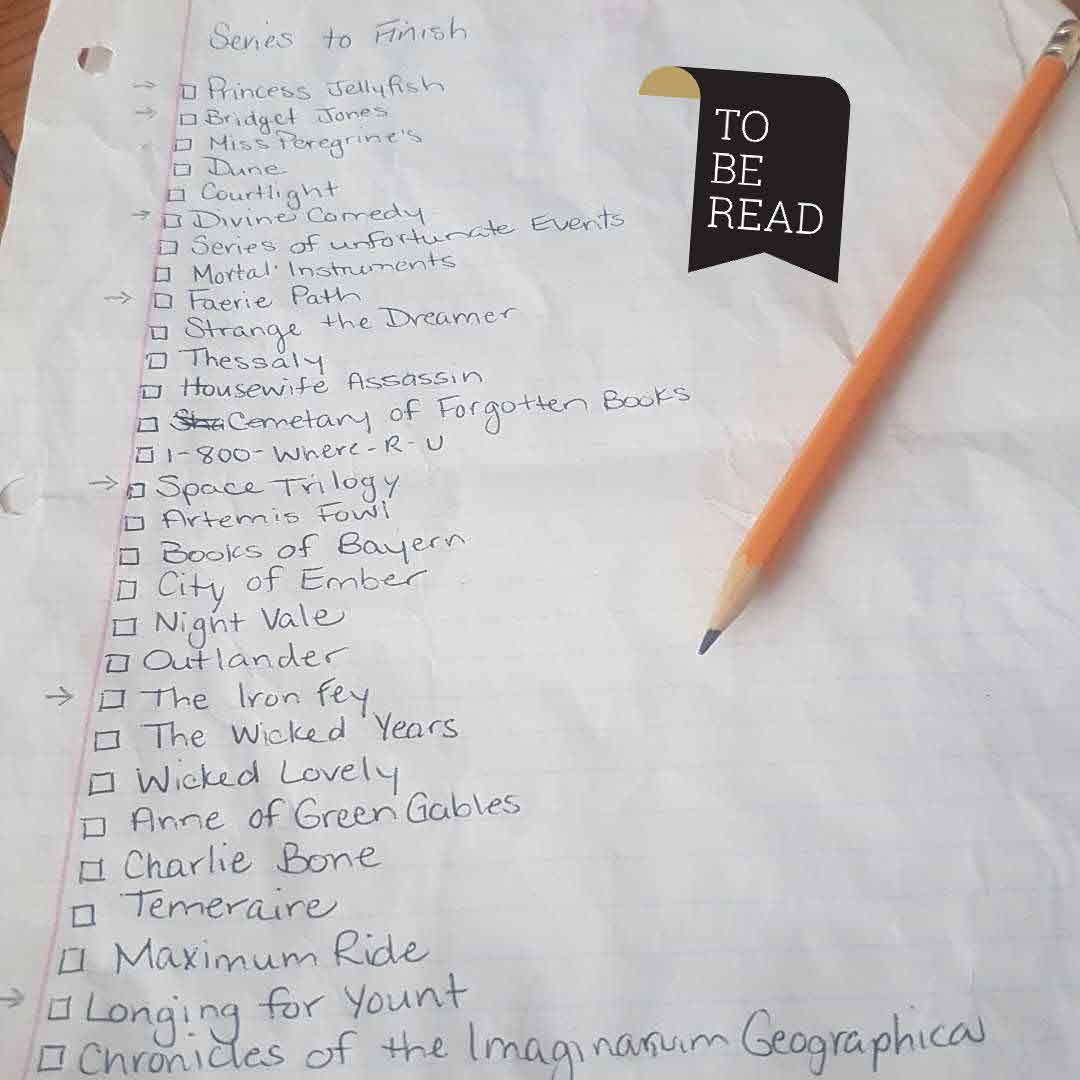 Series to Finish
→ □ Princess Jellyfish
→ □ Bridget Jones
□ Miss Peregrine's
□ Dune
□ Courtlight
→ □ Divine Comedy
□ Series of unfortunate Events
□ Mortal Instruments
→ □ Faerie Path
□ Strange the Dreamer
□ Thessaly
□ Housewife Assassin
□ Cemetary of Forgotten Books
□ 1-800-Where-R-U
→ □ Space Trilogy
□ Artemis Fowl
□ Books of Bayern
□ City of Ember
□ Night Vale
□ Outlander
→ □ The Iron Fey
□ The Wicked Years
□ Wicked Lovely
□ Anne of Green Gables
□ Charlie Bone
□ Temeraire
□ Maximum Ride
→ □ Longing for Yount
□ Chronicles of the Imaginarium Geographica
TO
BE
READ